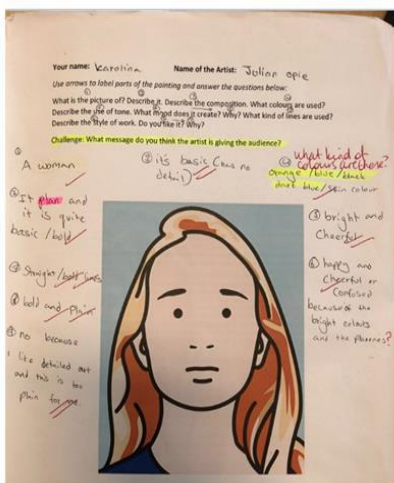 Your name: Karolina Name of the Artist: Julian opie
Use arrows to label parts of the painting and answer the questions below:
What is the picture of? Describe it. Describe the composition. What colours are used?
Describe the use of tone. What mood does it create? Why? What kind of lines are used?
Describe the style of work. Do you like it? Why?
Challenge: What message do you think the artist is giving the audience?
① A woman
② it's basic (has no
detail)
what kind of
colours are these?
orange /blue/black
dark blue/skin colour
It plain and
it is quite
basic /bold
⑤ bright and
Cheerful
Straight /bold lines
⑥ happy and
Cheerful or
Confused
because of the
bright colours
and the plainness?
⑧ bold and plain
⑨ no because
I like detailed art
and this is too
plain for me.